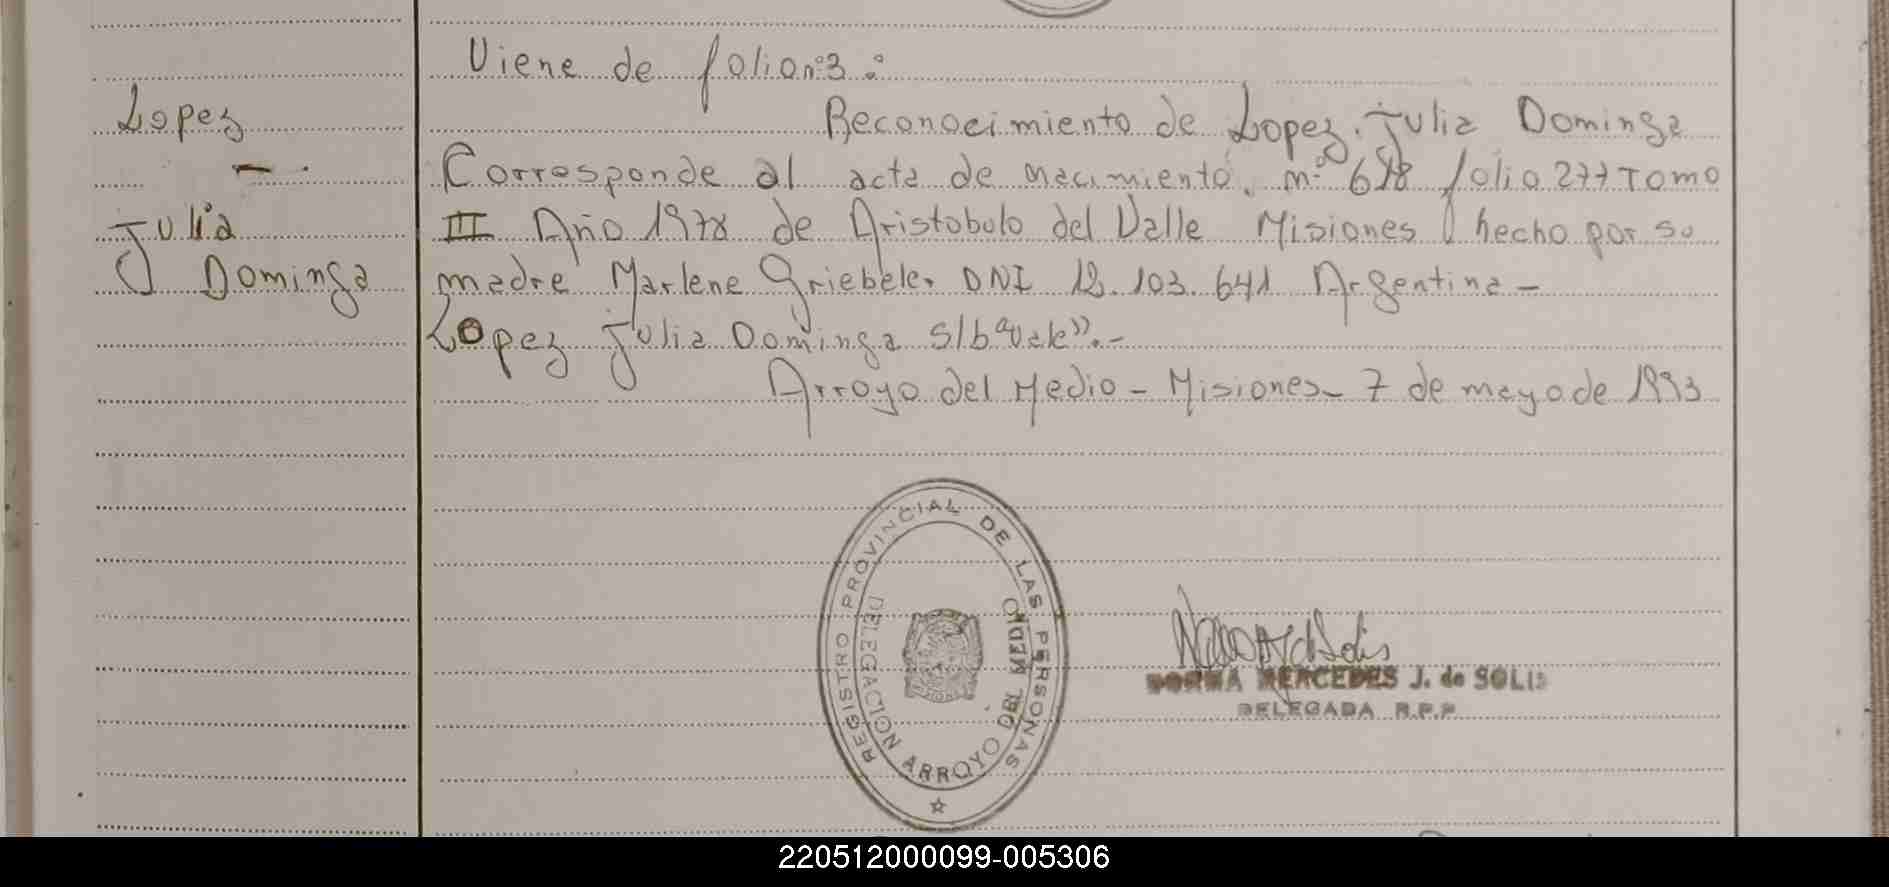 Viene de folio nº3:
Lopez
Julia
Dominga
Reconocimiento de Lopez, Julia Dominga
Corresponde al acta de nacimiento, nº 698 folio 277 Tomo
III Año 1978 de Aristobulo del Valle Misiones hecho por su
madre Marlene Griebeler DNI 12.103.641 Argentina -
Lopez Julia Dominga S/b "Vale".-
Arroyo del Medio - Misiones - 7 de mayo de 1993
REGISTRO PROVINCIAL DE LAS PERSONAS
DELEGACION ARROYO DEL MEDIO
NORMA MERCEDES J. de SOLIS
DELEGADA R.P.P
220512000099-005306